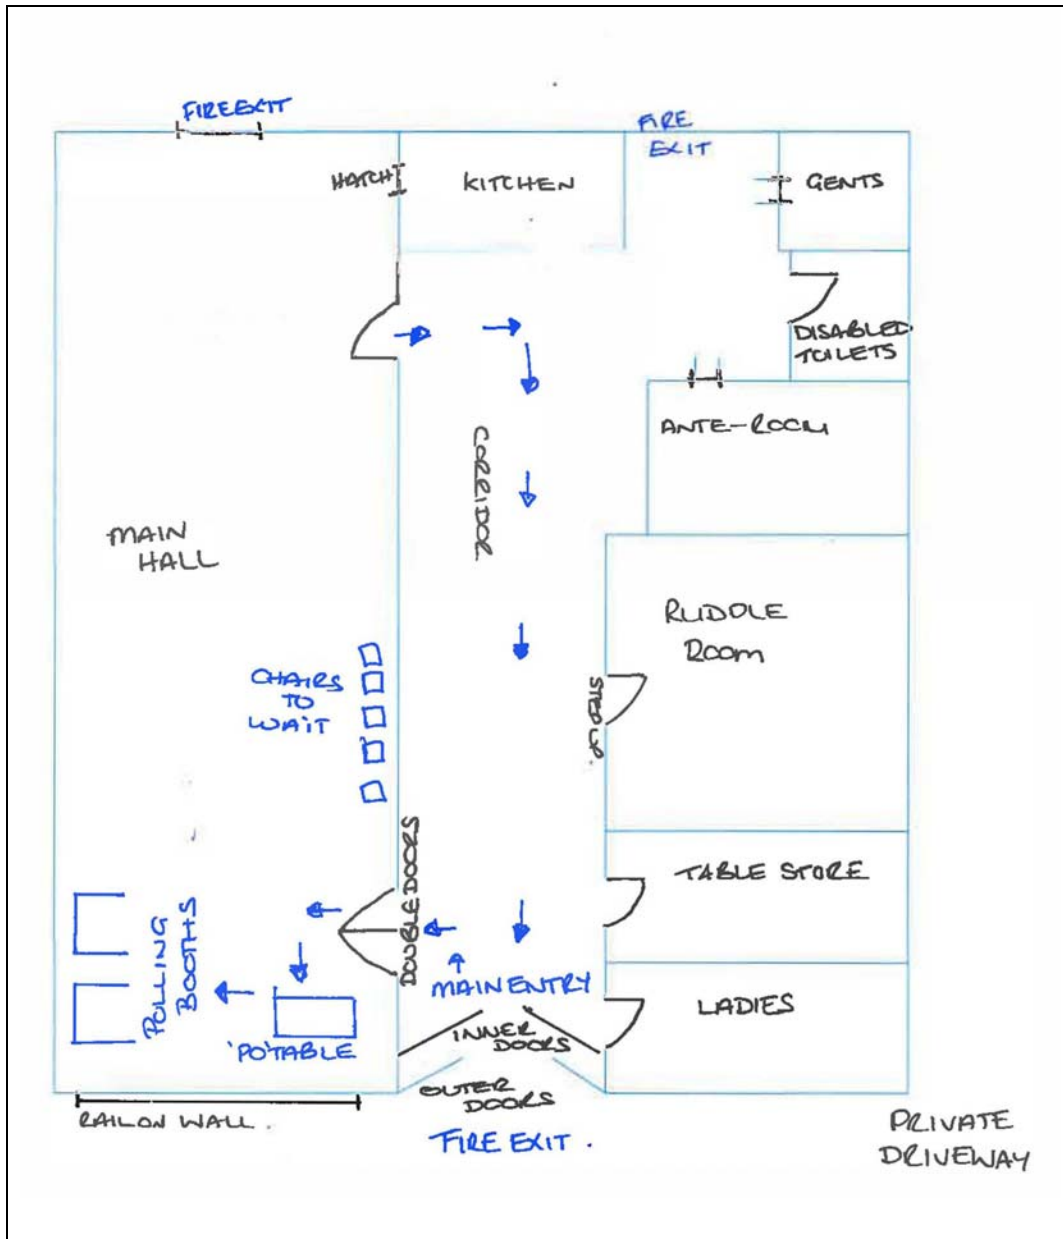 FIRE EXIT
FIRE
EXIT
HATCH
KITCHEN
GENTS
DISABLED
TOILETS
ANTE-ROOM
CORRIDOR
MAIN
HALL
RUDDLE
ROOM
CHAIRS
TO
WAIT
DOUBLE DOORS
TABLE STORE
POLLING
BOOTHS
MAIN ENTRY
LADIES
INNER
DOORS
'PO' TABLE
OUTER
DOORS
RAIL ON WALL.
FIRE EXIT.
PRIVATE
DRIVEWAY